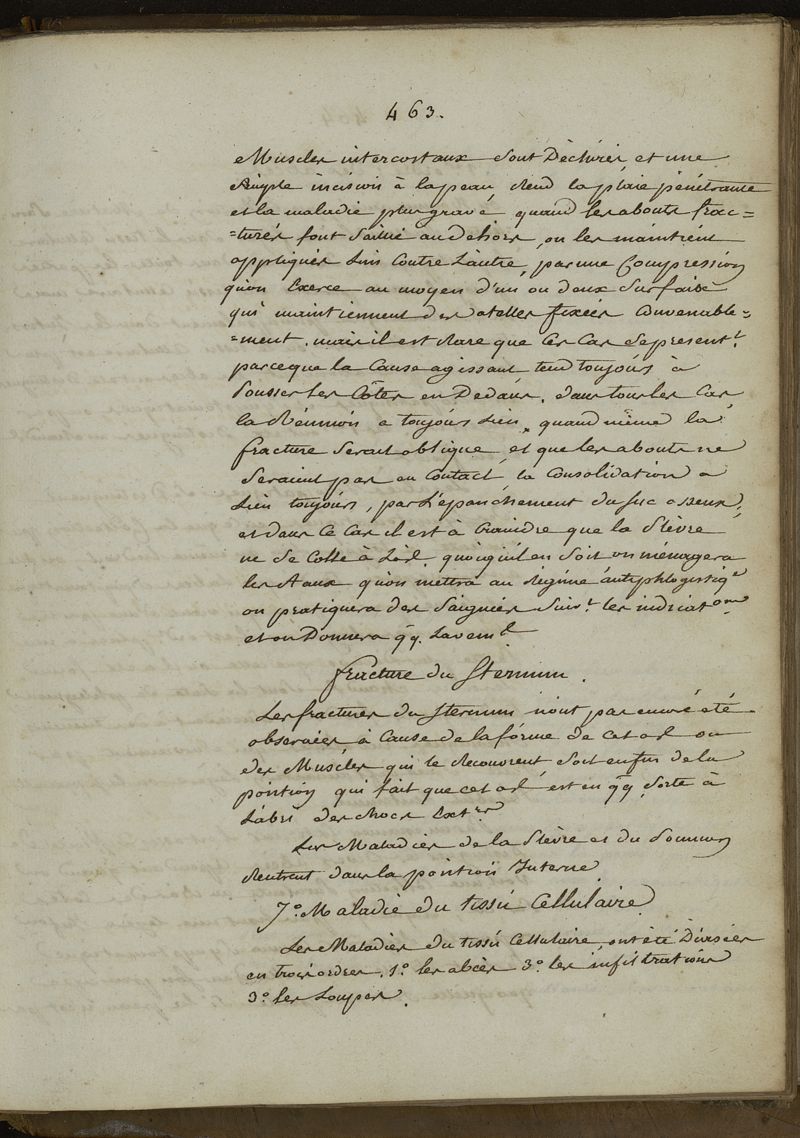 463.
Muscles intercostaux sont Déchirés, et une
simple incision à la peau, rend la plaie pénétrante
et la maladie plus grave. quand les abouts frac=
=turés font saillie au dehors, on les maintient
appliqués l'un contre l'autre, par une Compression
qu'on Exerce au moyen d'un ou deux surfaix
qui maintiennent des atelles fixées Convenable=
=ment. mais il est Rare que ces Cas se present.t
parceque la Cause agissant tend toujours à
pousser les Côtes en Dedans. dans tous les Cas,
la Réunion a toujours Lieu, quand même la
fracture serait oblique, et que les abouts ne
seraient pas en Contact, la Consolidation a
Lieu toujours, par l'épanchement du suc osseux,
et dans Ce Cas il est à Craindre que la Plèvre
ne se Colle à L'od. quoiqu'il en soit on ménagera
les A aux qu'on mettra au Régime antiphlogistiq.e
on pratiquera des saignées suiv.t les indicat.ons
et on Donnera qq. Lavem.t
fracture du Sternum.
Les fractures du sternum n'ont pas encore été
observées, à Cause de la forme de cet od ou
des Muscles qui le Recouvrent soit enfin de la
position qui fait que cet od est en qq. sorte à
L'abri des chocs Ext.rs
Les Maladies de la Plèvre et du Poumon
Rentrent dans la position Interne
7.o Maladie du tissu Cellulaire
Les Maladies du tissu Cellulaire, ont été Divisées
en trois ordres, 1.o les abcès 3.o les infiltrations
3.o les Loupes.